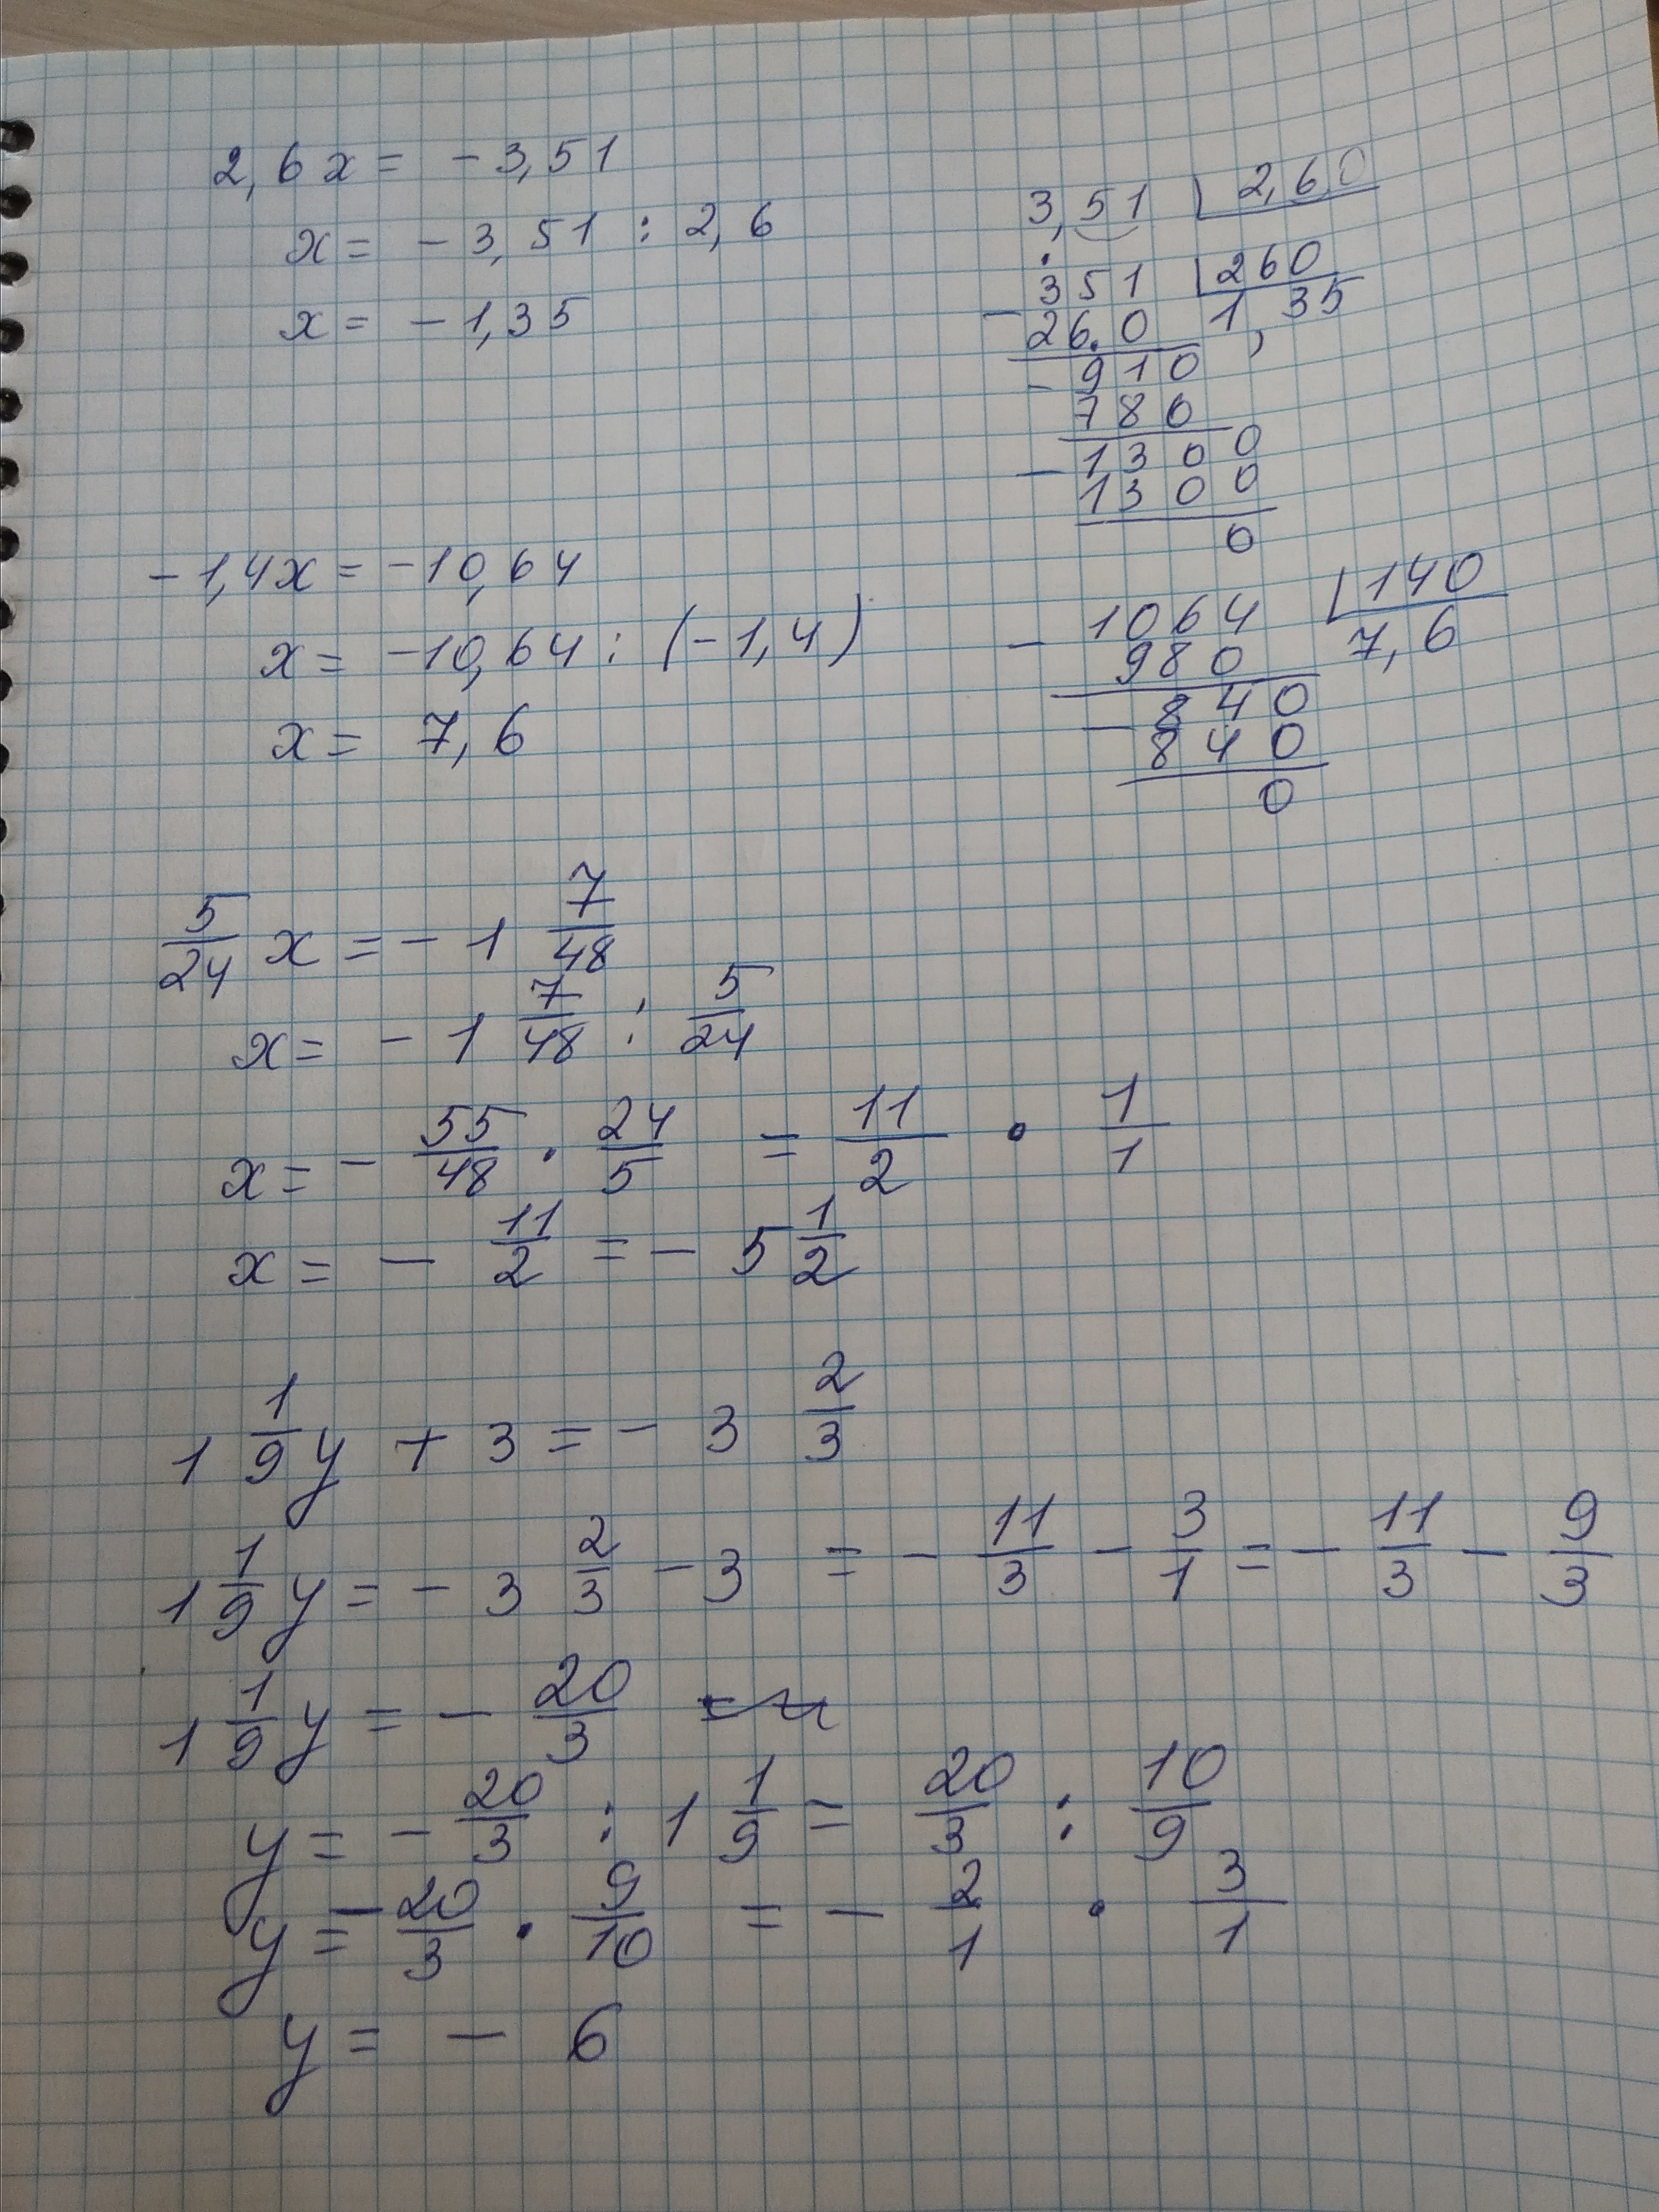 2,6x = - 3,51
x = - 3,51 : 2,6
x = - 1,35
3,51 2,60
351 260
- 260 1,35
- 910
780
- 1300
1300
0
- 1,4x = - 10,64
x = - 10,64 : (- 1,4)
x = 7,6
- 1064 140
980 7,6
- 840
840
0
5/24 x = - 1 7/48
x = - 1 7/48 : 5/24
x = - 55/48 · 24/5 = 11/2 · 1/1
x = - 11/2 = - 5 1/2
1 1/9 y + 3 = - 3 2/3
1 1/9 y = - 3 2/3 - 3 = - 11/3 - 3/1 = - 11/3 - 9/3
1 1/9 y = - 20/3
y = - 20/3 : 1 1/9 = 20/3 : 10/9
y = - 20/3 · 9/10 = - 2/1 · 3/1
y = - 6